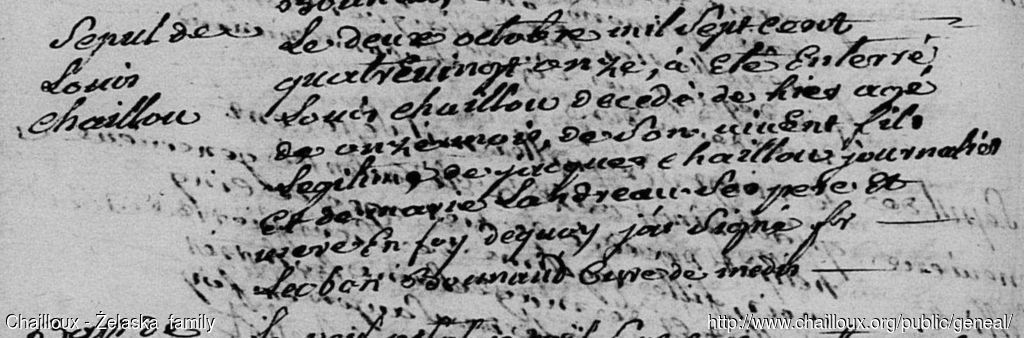 Sepul de
Louis
chaillou
Le deux octobre mil sept cent
quatrevingt onze, à eté enterré
Louis chaillou decedé de hier agé
de onze mois, de son vivent fils
Legitime de jacques chaillou journalier
et de marie Landreau ses pere et
mere en foy dequoy j'ai signé fr
curé de medis
Chailloux - Želaska family
http://www.chailloux.org/public/geneal/